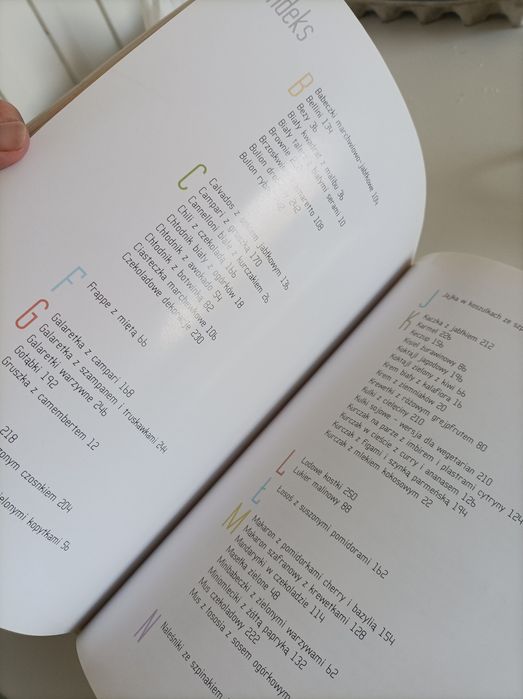 ndeks
B
Babeczki marchwiowo-jabłkowe 104
Bellini 134
Bezy 36
Biały kwadrat z malbu 36
Biały tal białymi serami 10
Brownie
Brzoskw maretto 108
Bulion dro
Bulion ryb 242
C
Calvados z jabłkowym 136
Campari z g 170
Cannelloni białe z kurczakiem 26
Chili z czekoladą 166
Chłodnik biały z ogórków 18
Chłodnik z awokado 54
Chłodnik z botwinką 82
Ciasteczka marchwiowe 106
Czekoladowe dekoracje 230
F
Frappe z miętą 66
G
Galaretka z campari 168
Galaretka z szampanem i truskawkami 244
Galaretki warzywne 246
Gołąbki 192
Gruszka z camembertem 12
218
onym czosnkiem 204
ielonymi kopytkami 56
J
Jajka w koszulkach ze
K
Kaczka z jabłkiem 212
Karmel 226
Keczup 156
Kisiel żurawinowy 86
Koktajl jagodowy 196
Koktajl zielony z kiwi 66
Krem biały z kalafiora 16
Krem z ziemniaków 20
Krewetki z różowym grejpfrutem 80
Kulki z cielęciny 210
Kulki sojowe - wersja dla wegetarian 210
Kurczak na parze z imbirem i plastrami cytryny 124
Kurczak w cieście z curry i ananasem 126
Kurczak z figami i szynką parmeńską 194
Kurczak z mlekiem kokosowym 22
L
Lodowe kostki 250
Lukier malinowy 88
Ł
Łosoś z suszonymi pomidorami 162
M
Makaron z pomidorkami cherry i bazylią 154
Makaron szafranowy z krewetkami 128
Mandarynki w czekoladzie 114
Masełka zielone 48
Minibabeczki z zielonymi warzywami 62
Miniomleciki z żółtą papryką 132
Mus czekoladowy 222
Mus z łososia z sosem ogórkowym
N
Naleśniki ze szpinakiem